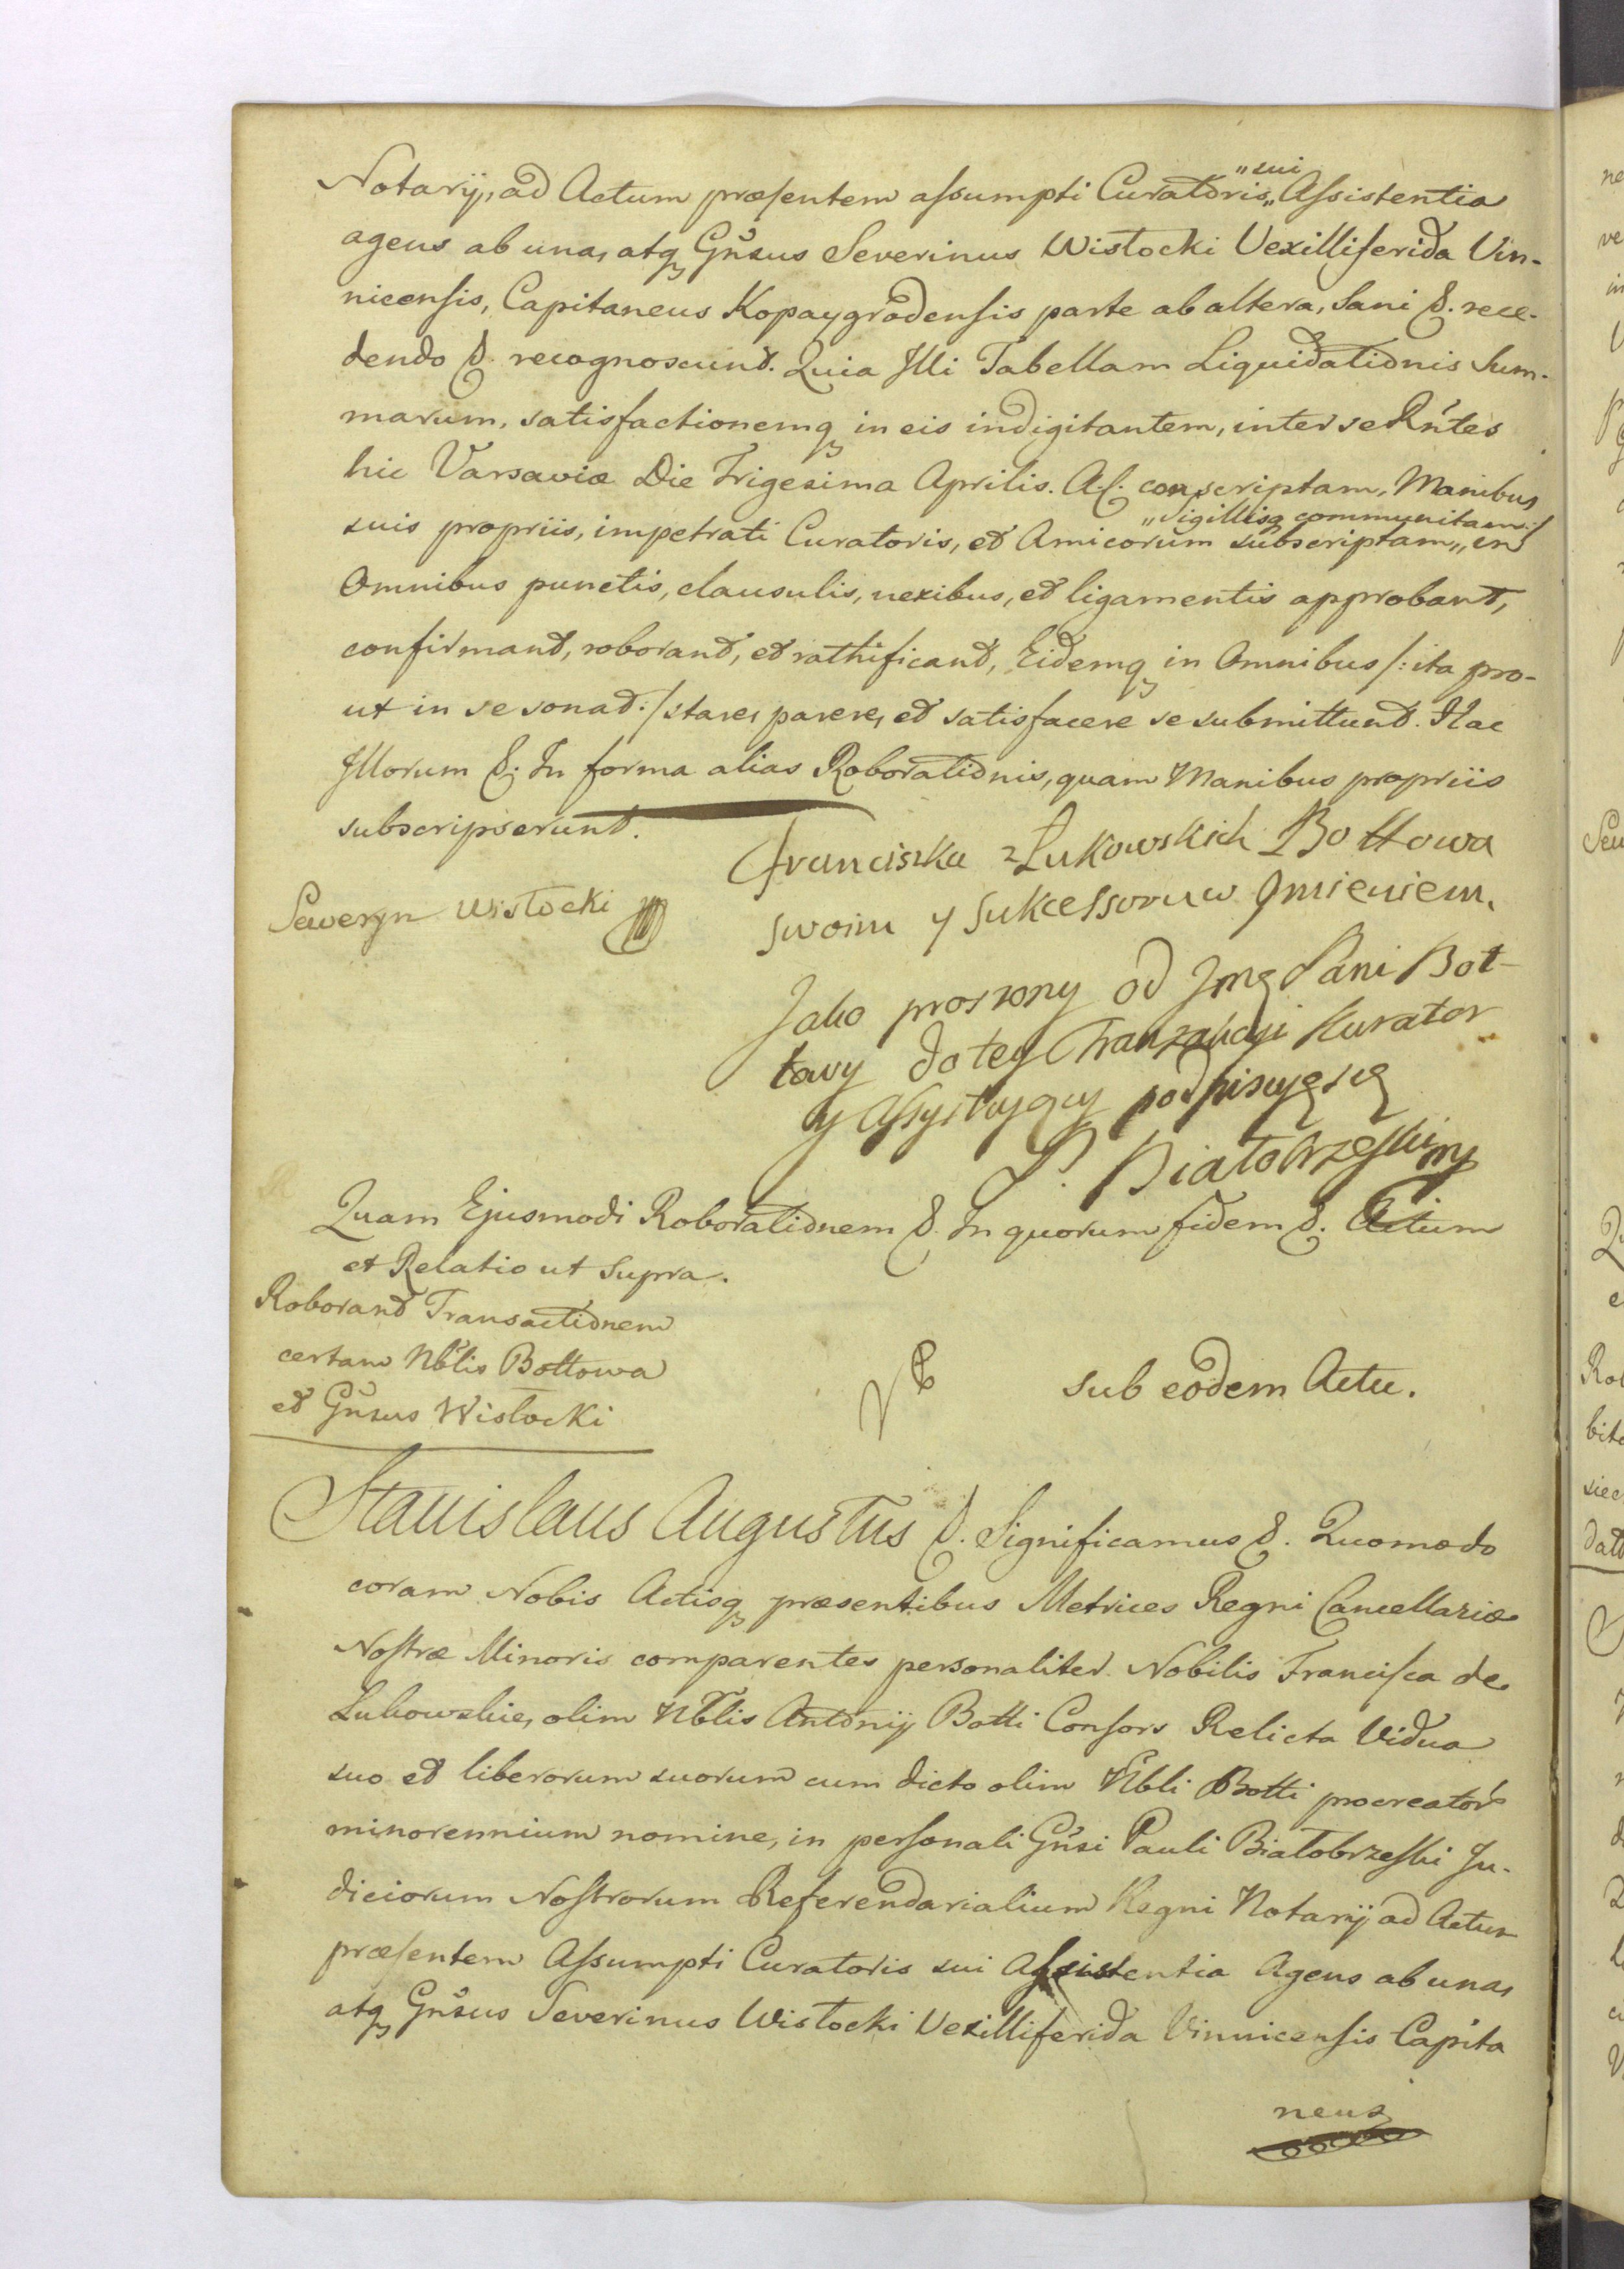 Notarij, ad Actum præsentem assumpti Curatoris „sui„ Assistentia
agens ab una, atq Gñsus Severinus Wisłocki Vexilliferida Vin-
nicensis, Capitaneus Kopaygrodensis parte ab altera, Sani &. rece-
dendo &. recognoscunt. Quia Illi Tabellam Liquidationis Sum-
marum, satisfactionemq in eis indigitantem, inter se Rñtes
hic Varsaviæ Die Trigesima Aprilis. A.C. conscriptam, Manibus
suis propriis, impetrati Curatoris, et Amicorum subscriptam „Sigillisq communitam„ in
Omnibus punctis, clausulis, nexibus, et ligamentis approbant,
confirmant, roborant, et rathificant, Eidemq in Omnibus /: ita pro-
ut in se sonat :/ stare, parere, et satisfacere se submittunt. Hac
Illorum &. In forma alias Roborationis, quam Manibus propriis
subscripserunt.
Franciszka z Łukowskich Bottowa
swoim y Sukcessorow Jmieniem.
Seweryn Wisłocki
Jako proszony od Jmę Pani Bot-
towy do tey Tranzakcyi Kurator
y Assystuyący podpisuyę się
P. Białobrzeski mp
Quam Ejusmodi Roborationem &. In quorum fidem &. Actum
et Relatio ut Supra.
Roborant Transactionem
certam Nblis Bottowa
et Gñsus Wisłocki
sub eodem Actu.
Stanislaus Augustus &. Significamus &. Quomodo
coram Nobis Actisq præsentibus Metrices Regni Cancellariæ
Nostræ Minoris comparentes personaliter. Nobilis Francisca de
Lukowskie, olim Nblis Antonij Botti Consors Relicta Vidua
suo et liberorum suorum cum dicto olim Nbli Botti procreator
minorennium nomine, in personali Gñsi Pauli Białobrzeski Ju-
diciorum Nostrorum Referendarialium Regni Notarij ad Actum
præsentem Assumpti Curatoris sui Assistentia Agens ab una,
atq Gñsus Severinus Wisłocki Vexilliferida Vinnicensis Capita
neus